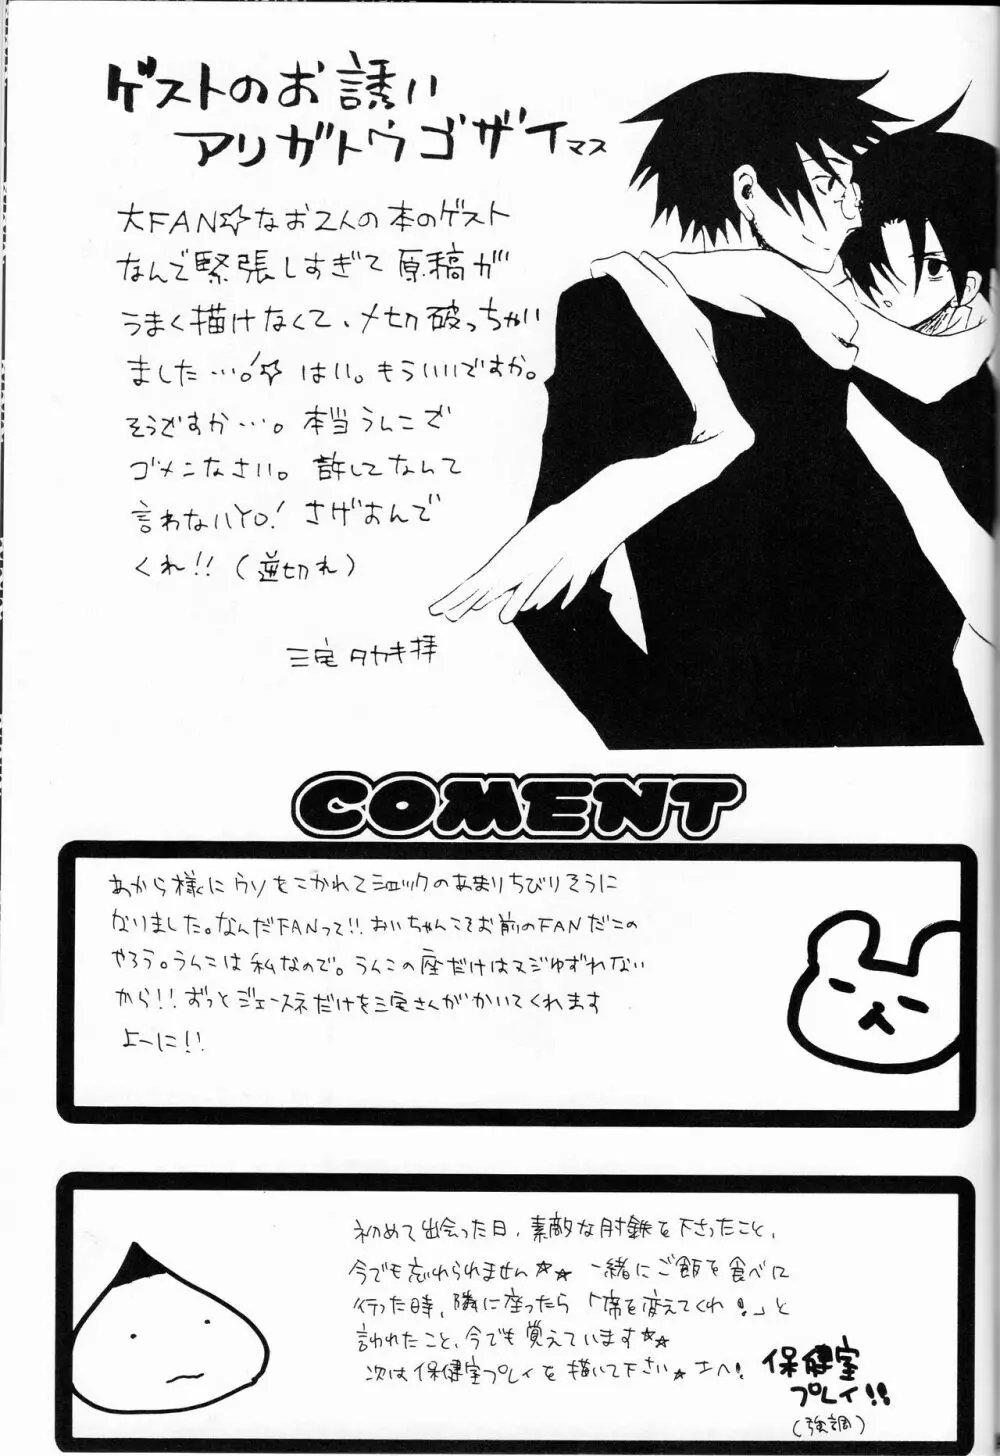 ゲストのお誘い
アリガトウゴザイマス
大FAN☆なお2人の本のゲスト
なんで緊張しすぎて原稿が
うまく描けなくて、〆切破っちゃい
ました…。☆ はい。もういいですか。
そうですか…。本当うんこで
ゴメンなさい。許してなんて
言わないYO! さげすんで
くれ!!(逆切れ)
三宅タカキ拝
COMENT
あから様にウソをこかれてショックのあまりちびりそうに
なりました。なんだFANって!! おいちゃんこそお前のFANだこの
やろう。うんこは私なので。うんこの座だけはスジゆずれない
から!! ずっとジェースネだけを三宅さんがかいてくれます
よーに!!
初めて出会った日、素敵な肘鉄を下さったこと、
今でも忘れられません☆★ 一緒にご飯を食べに
行った時、隣に座ったら「席を変えてくれ!」と
言われたこと、今でも覚えています☆★
次は保健室プレイを描いて下さい★
保健室
プレイ!!
(強調)